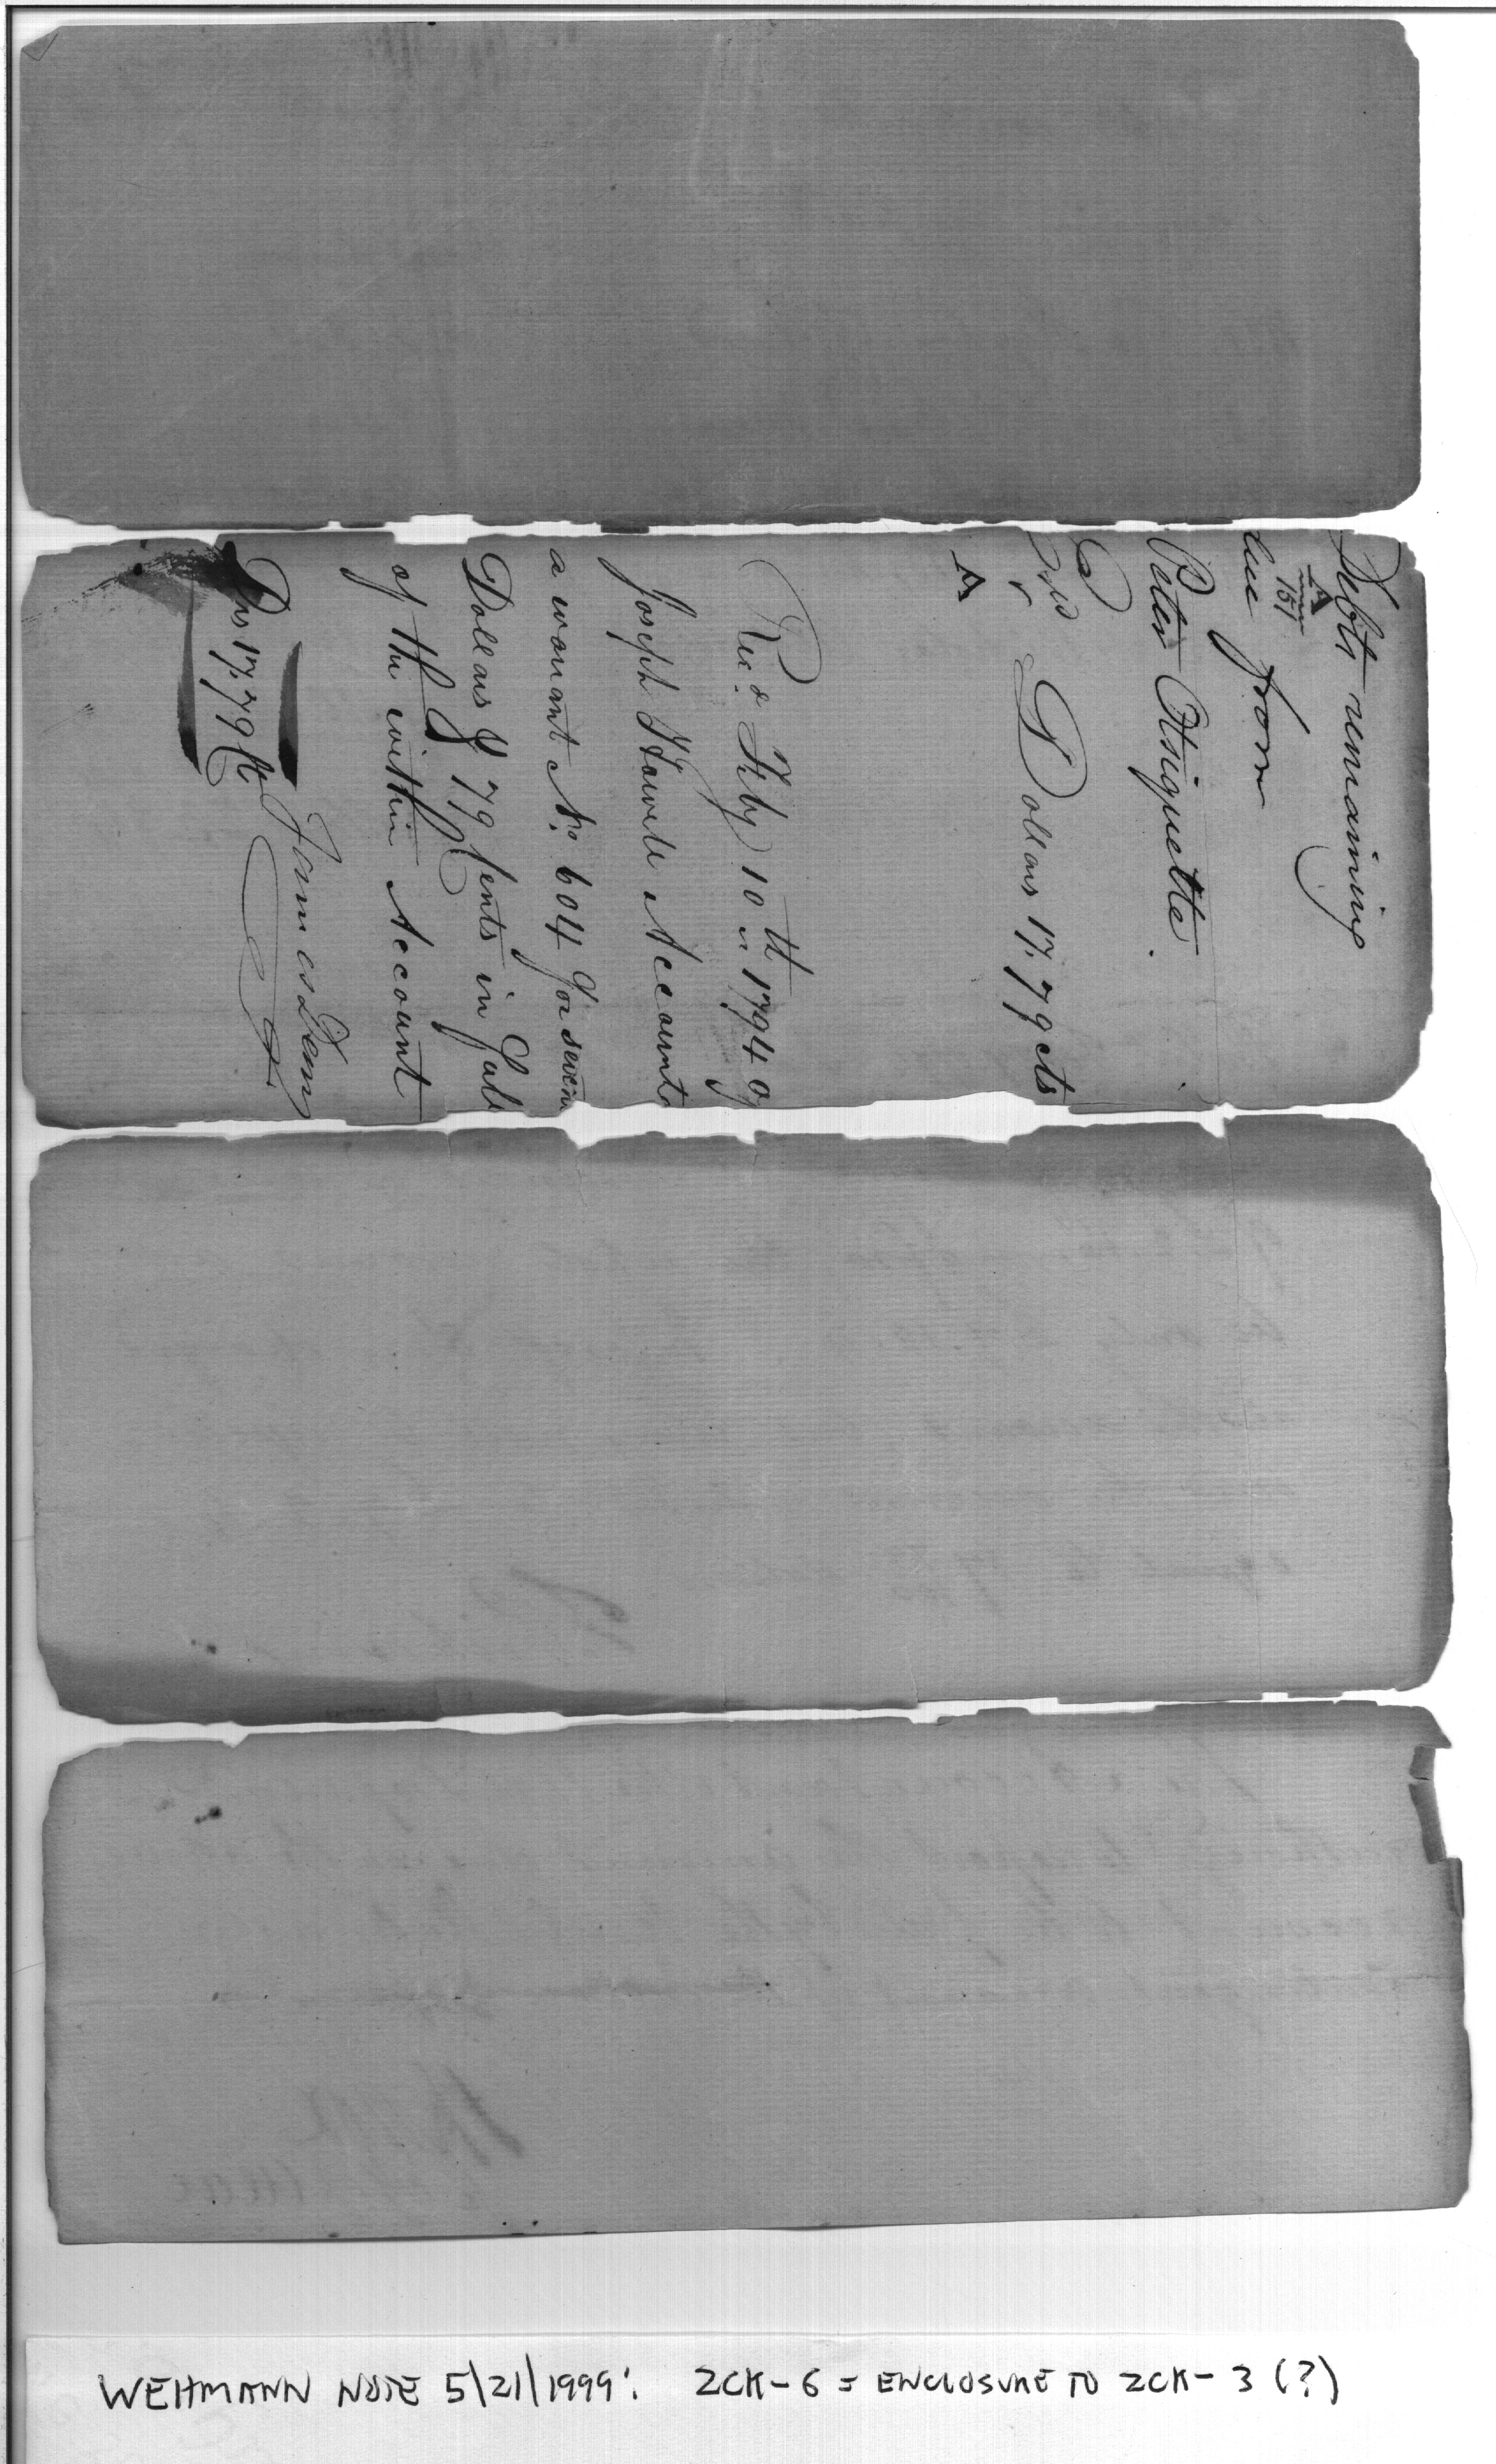 Debts remaining
A
151
due from
Peter Otsiquette.
Dollars 17.79 cts
A
Rec.d Feby 10th 1794 of
Joseph Howell Accountt
a warrant No. 604 for seven
Dollars & 79 Cents in full
of the within Account
James Dean
Drs 17.79 Cts
WEHMANN NOTE 5/21/1999: ZCK-6 = ENCLOSURE TO ZCK-3 (?)